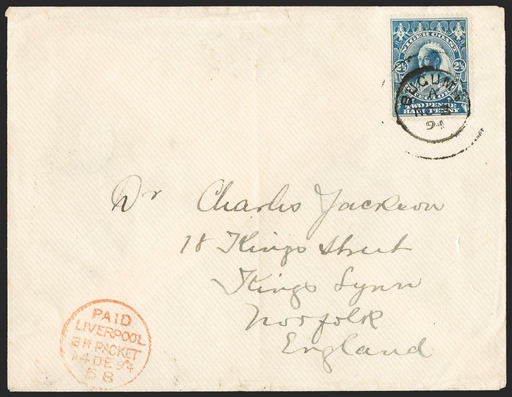 NIGER COAST
TWO PENCE
HALF PENNY
BUGUMA
A
94
Dr Charles Jackson
18 Kings Street
Kings Lynn
Norfolk
England
PAID
LIVERPOOL
BR. PACKET
14 DE 94
5 8